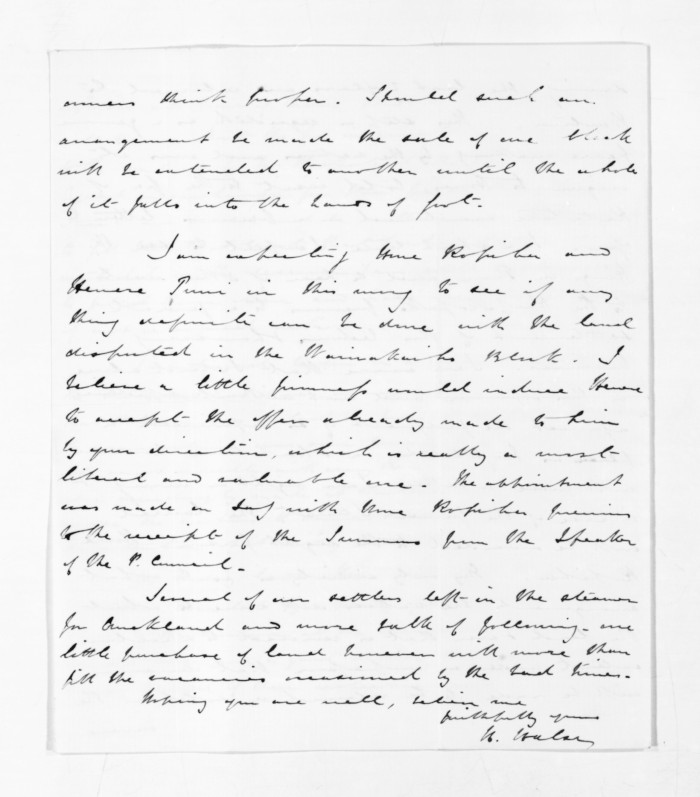 owners think proper. Should such an
arrangement be made the sale of one block
will be extended to another until the whole
of it falls into the hands of Govt.
I am expecting Hone Ropiha and
Henere in this mong to see if any
thing definite can be done with the land
disputed in the Block. I
believe a little firmness would induce Henere
to accept the offer already made to him
by your direction, which is really a most
liberal and valuable one. The appointment
was made on with Hone Ropiha previous
to the receipt of the Summons from the Speaker
of the P. Council.
Several of our settlers left in the steamer
for Auckland and more talk of following. One
little purchase of land however will more than
fill the vacancies occasioned by the bad times.
Hoping you are well, believe me
faithfully yours
H. Halse